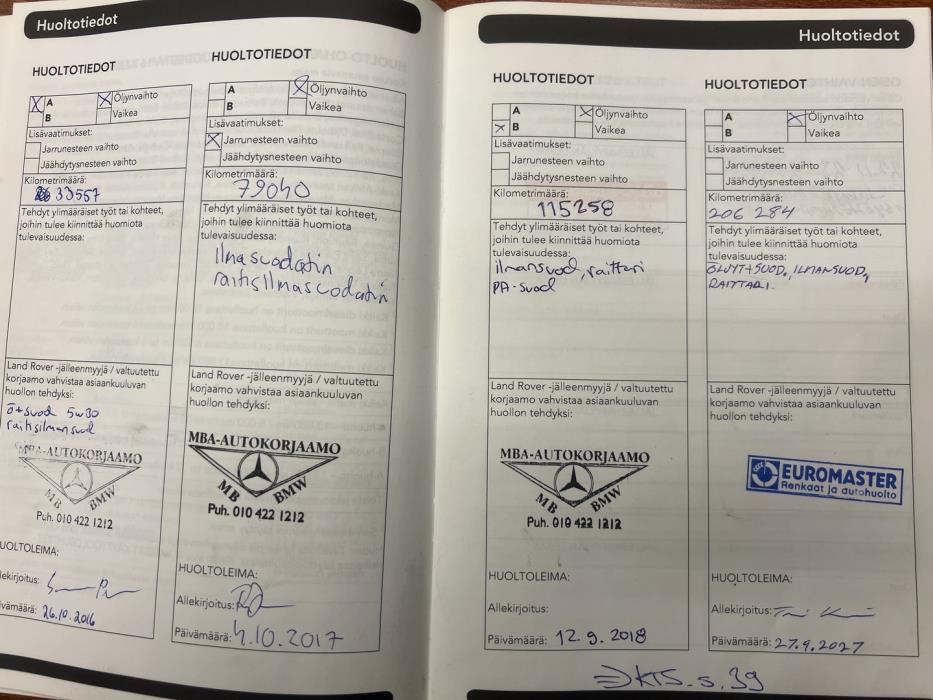 Huoltotiedot
HUOLTOTIEDOT
A
B
Öljynvaihto
Vaikea
Lisävaatimukset:
Jarrunesteen vaihto
Jäähdytysnesteen vaihto
Kilometrimäärä:
33557
Tehdyt ylimääräiset työt tai kohteet,
joihin tulee kiinnittää huomiota
tulevaisuudessa:
Land Rover -jälleenmyyjä / valtuutettu
korjaamo vahvistaa asiaankuuluvan
huollon tehdyksi:
ö+suod 5w30
raitisilmansuod
MBA-AUTOKORJAAMO
MB BMW
Puh. 010 422 1212
HUOLTOLEIMA:
Allekirjoitus:
Päivämäärä: 26.10.2016
HUOLTOTIEDOT
A
B
Öljynvaihto
Vaikea
Lisävaatimukset:
Jarrunesteen vaihto
Jäähdytysnesteen vaihto
Kilometrimäärä:
79040
Tehdyt ylimääräiset työt tai kohteet,
joihin tulee kiinnittää huomiota
tulevaisuudessa:
Ilmasuodatin
raitisIlmascodatin
Land Rover -jälleenmyyjä / valtuutettu
korjaamo vahvistaa asiaankuuluvan
huollon tehdyksi:
MBA-AUTOKORJAAMO
MB BMW
Puh. 010 422 1212
HUOLTOLEIMA:
Allekirjoitus:
Päivämäärä: 4.10.2017
Huoltotiedot
HUOLTOTIEDOT
A
B
Öljynvaihto
Vaikea
Lisävaatimukset:
Jarrunesteen vaihto
Jäähdytysnesteen vaihto
Kilometrimäärä:
115258
Tehdyt ylimääräiset työt tai kohteet,
joihin tulee kiinnittää huomiota
tulevaisuudessa:
ilmansuod, raittari
PA-suod
Land Rover -jälleenmyyjä / valtuutettu
korjaamo vahvistaa asiaankuuluvan
huollon tehdyksi:
MBA-AUTOKORJAAMO
MB BMW
Puh. 010 422 1212
HUOLTOLEIMA:
Allekirjoitus:
Päivämäärä: 12.9.2018
HUOLTOTIEDOT
A
B
Öljynvaihto
Vaikea
Lisävaatimukset:
Jarrunesteen vaihto
Jäähdytysnesteen vaihto
Kilometrimäärä:
206 284
Tehdyt ylimääräiset työt tai kohteet,
joihin tulee kiinnittää huomiota
tulevaisuudessa:
ÖLJYT+SUOD, ILMANSUOD,
RAITTARI.
Land Rover -jälleenmyyjä / valtuutettu
korjaamo vahvistaa asiaankuuluvan
huollon tehdyksi:
EUROMASTER
Renkaat ja autohuolto
HUOLTOLEIMA:
Allekirjoitus:
Päivämäärä: 27.9.2027
⇒ KTS. s. 39